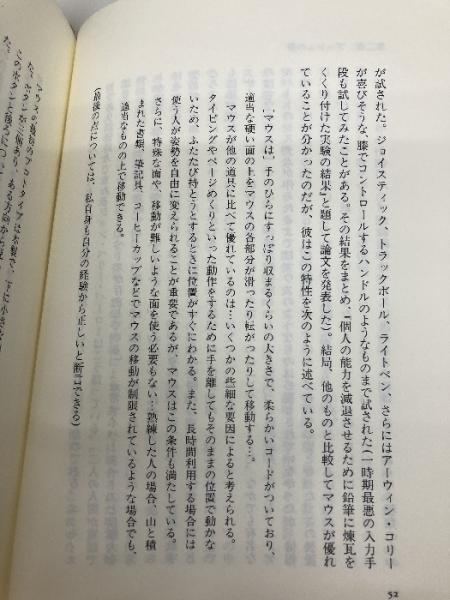 が試された。ジョイスティック、トラックボール、ライトペン、さらにはアーウィン・コリー
が喜びそうな、膝でコントロールするハンドルのようなものまで試された(一時期最悪の入力手
段も試してみたことがある。その結果をまとめ、「個人の能力を減退させるために鉛筆に煉瓦を
くくり付けた実験の結果」と題して論文を発表した)。結局、他のものと比較してマウスが優れ
ていることが分かったのだが、彼はこの特性を次のように述べている。
[マウスは]手のひらにすっぽり収まるくらいの大きさで、柔らかいコードがついており、
適当な硬い面の上をマウスの各部分が滑ったり転がったりして移動する…。
マウスが他の道具に比べて優れているのは…いくつかの些細な要因によると考えられる。
タイピングやページめくりといった動作をするために手を離してもそのままの位置で動かな
いため、ふたたび持とうとするときに位置がすぐにわかる。また、長時間利用する場合には
使う人が姿勢を自由に変えられることが重要であるが、マウスはこの条件も満たしている。
さらに、特殊な面や、移動が難しいような面を使う必要もない…熟練した人の場合、山と積
まれた書類、筆記具、コーヒーカップなどでマウスの移動が制限されているような場合でも、
適当なものの上で移動できる。
(最後の点については、私自身も自分の経験から正しいと断言できる)
マウスの最初のプロトタイプは木製で、下に小さな
52